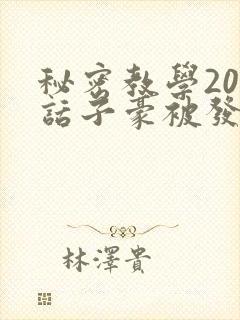 秘密教學20
話子豪被發
林澤貴